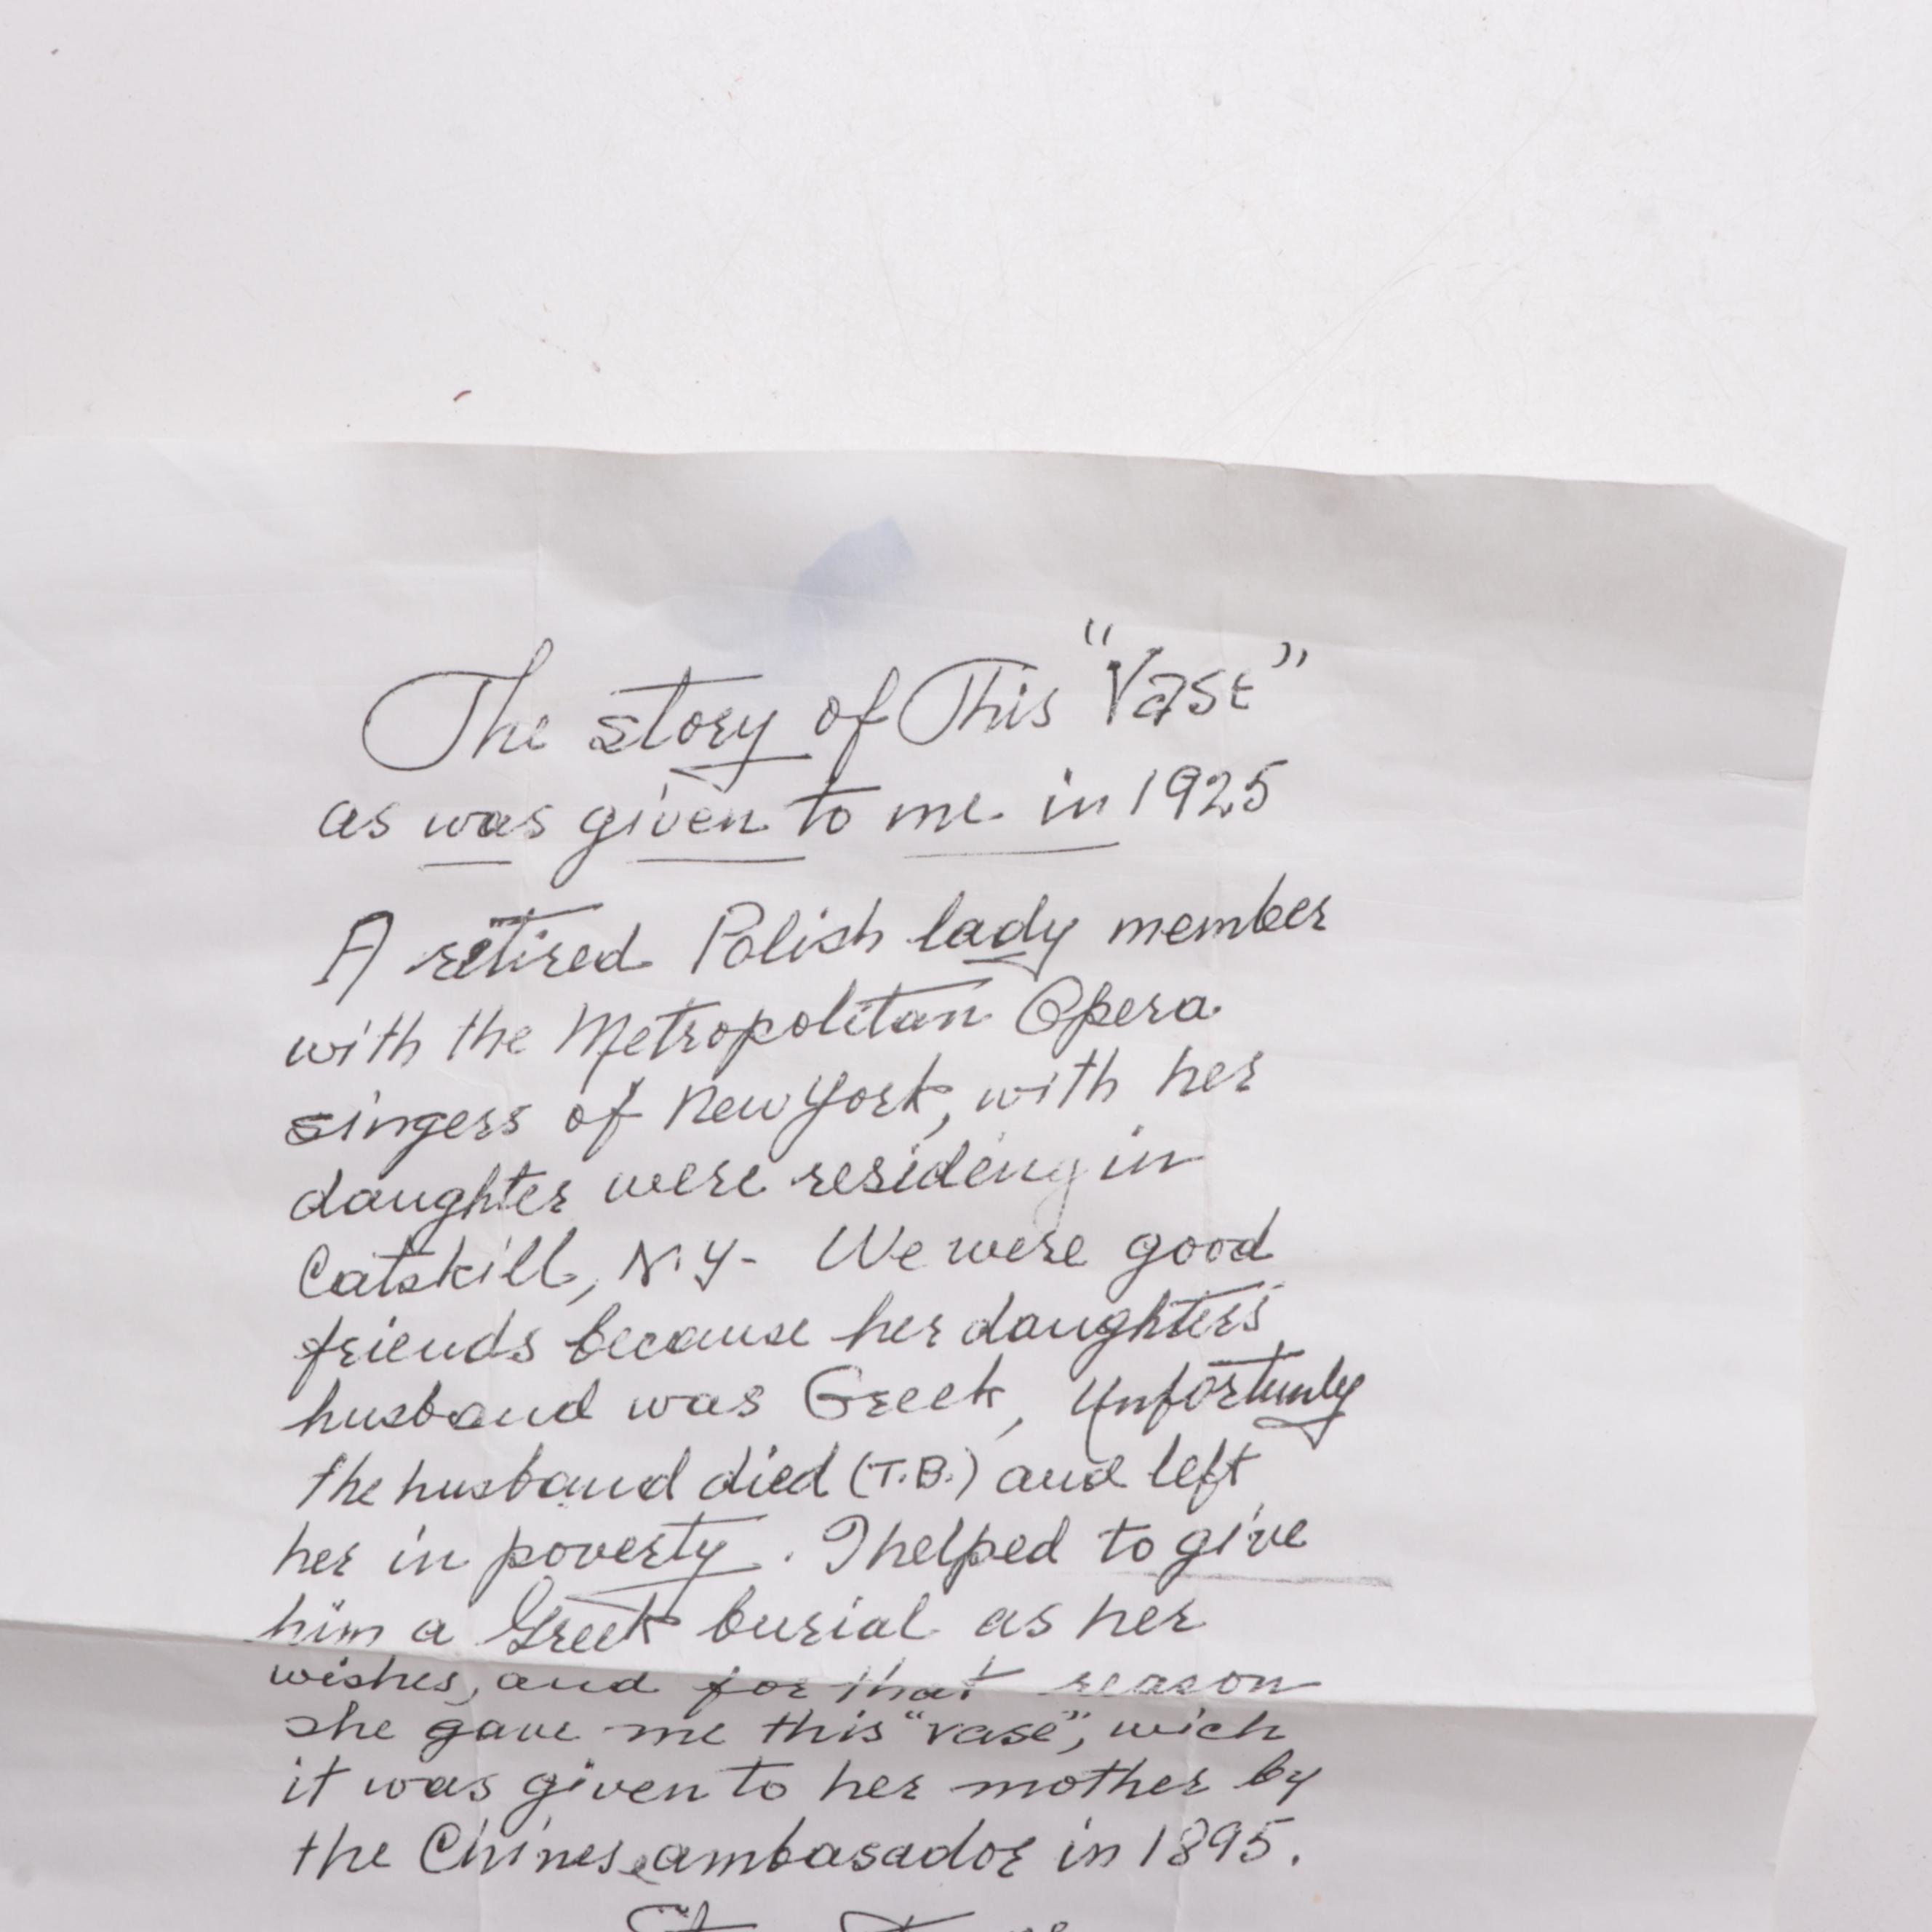 The story of This "Vase"
as was given to me in 1925
A retired Polish lady member
with the Metropolitan Opera
singers of New York, with her
daughter were resideng in
Catskill, N.Y- We were good
friends because her daughters
husband was Greek, Unfortunly
the husband died (T.B.) and left
her in poverty. I helped to give
him a Greek burial as her
wishes, and for that reason
she gave me this "vase", wich
it was given to her mother by
the Chinese ambasador in 1895.